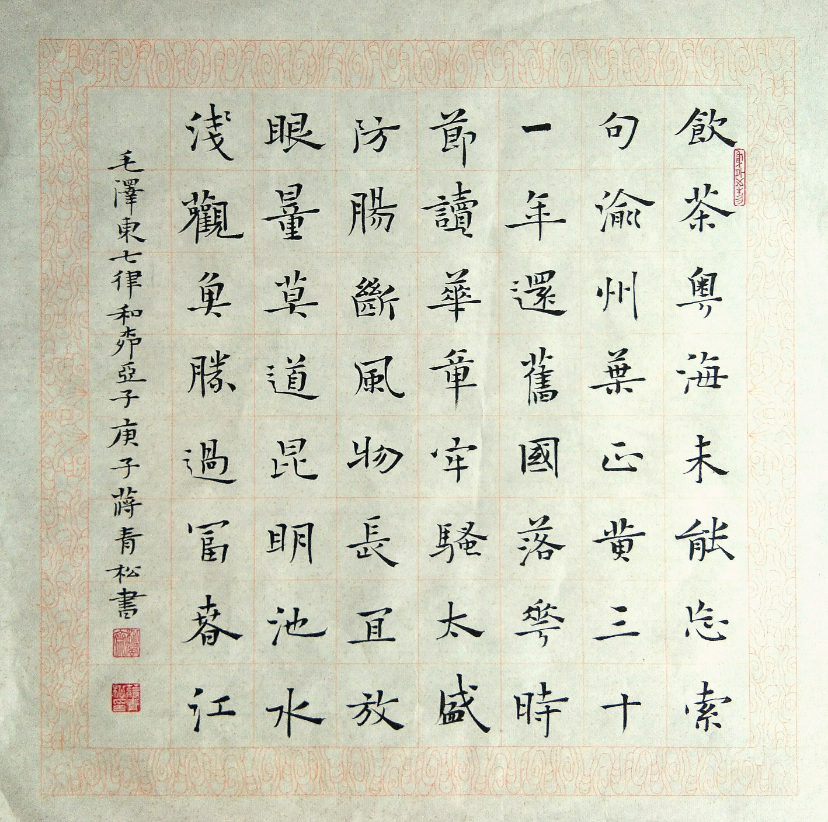 飲茶粵海未能忘索
句渝州葉正黄三十
一年還舊國落華時
節讀華章牢騷太盛
防腸斷風物長宜放
眼量莫道昆明池水
淺觀魚勝過富春江
毛澤東七律和柳亞子庚子蔣青松書